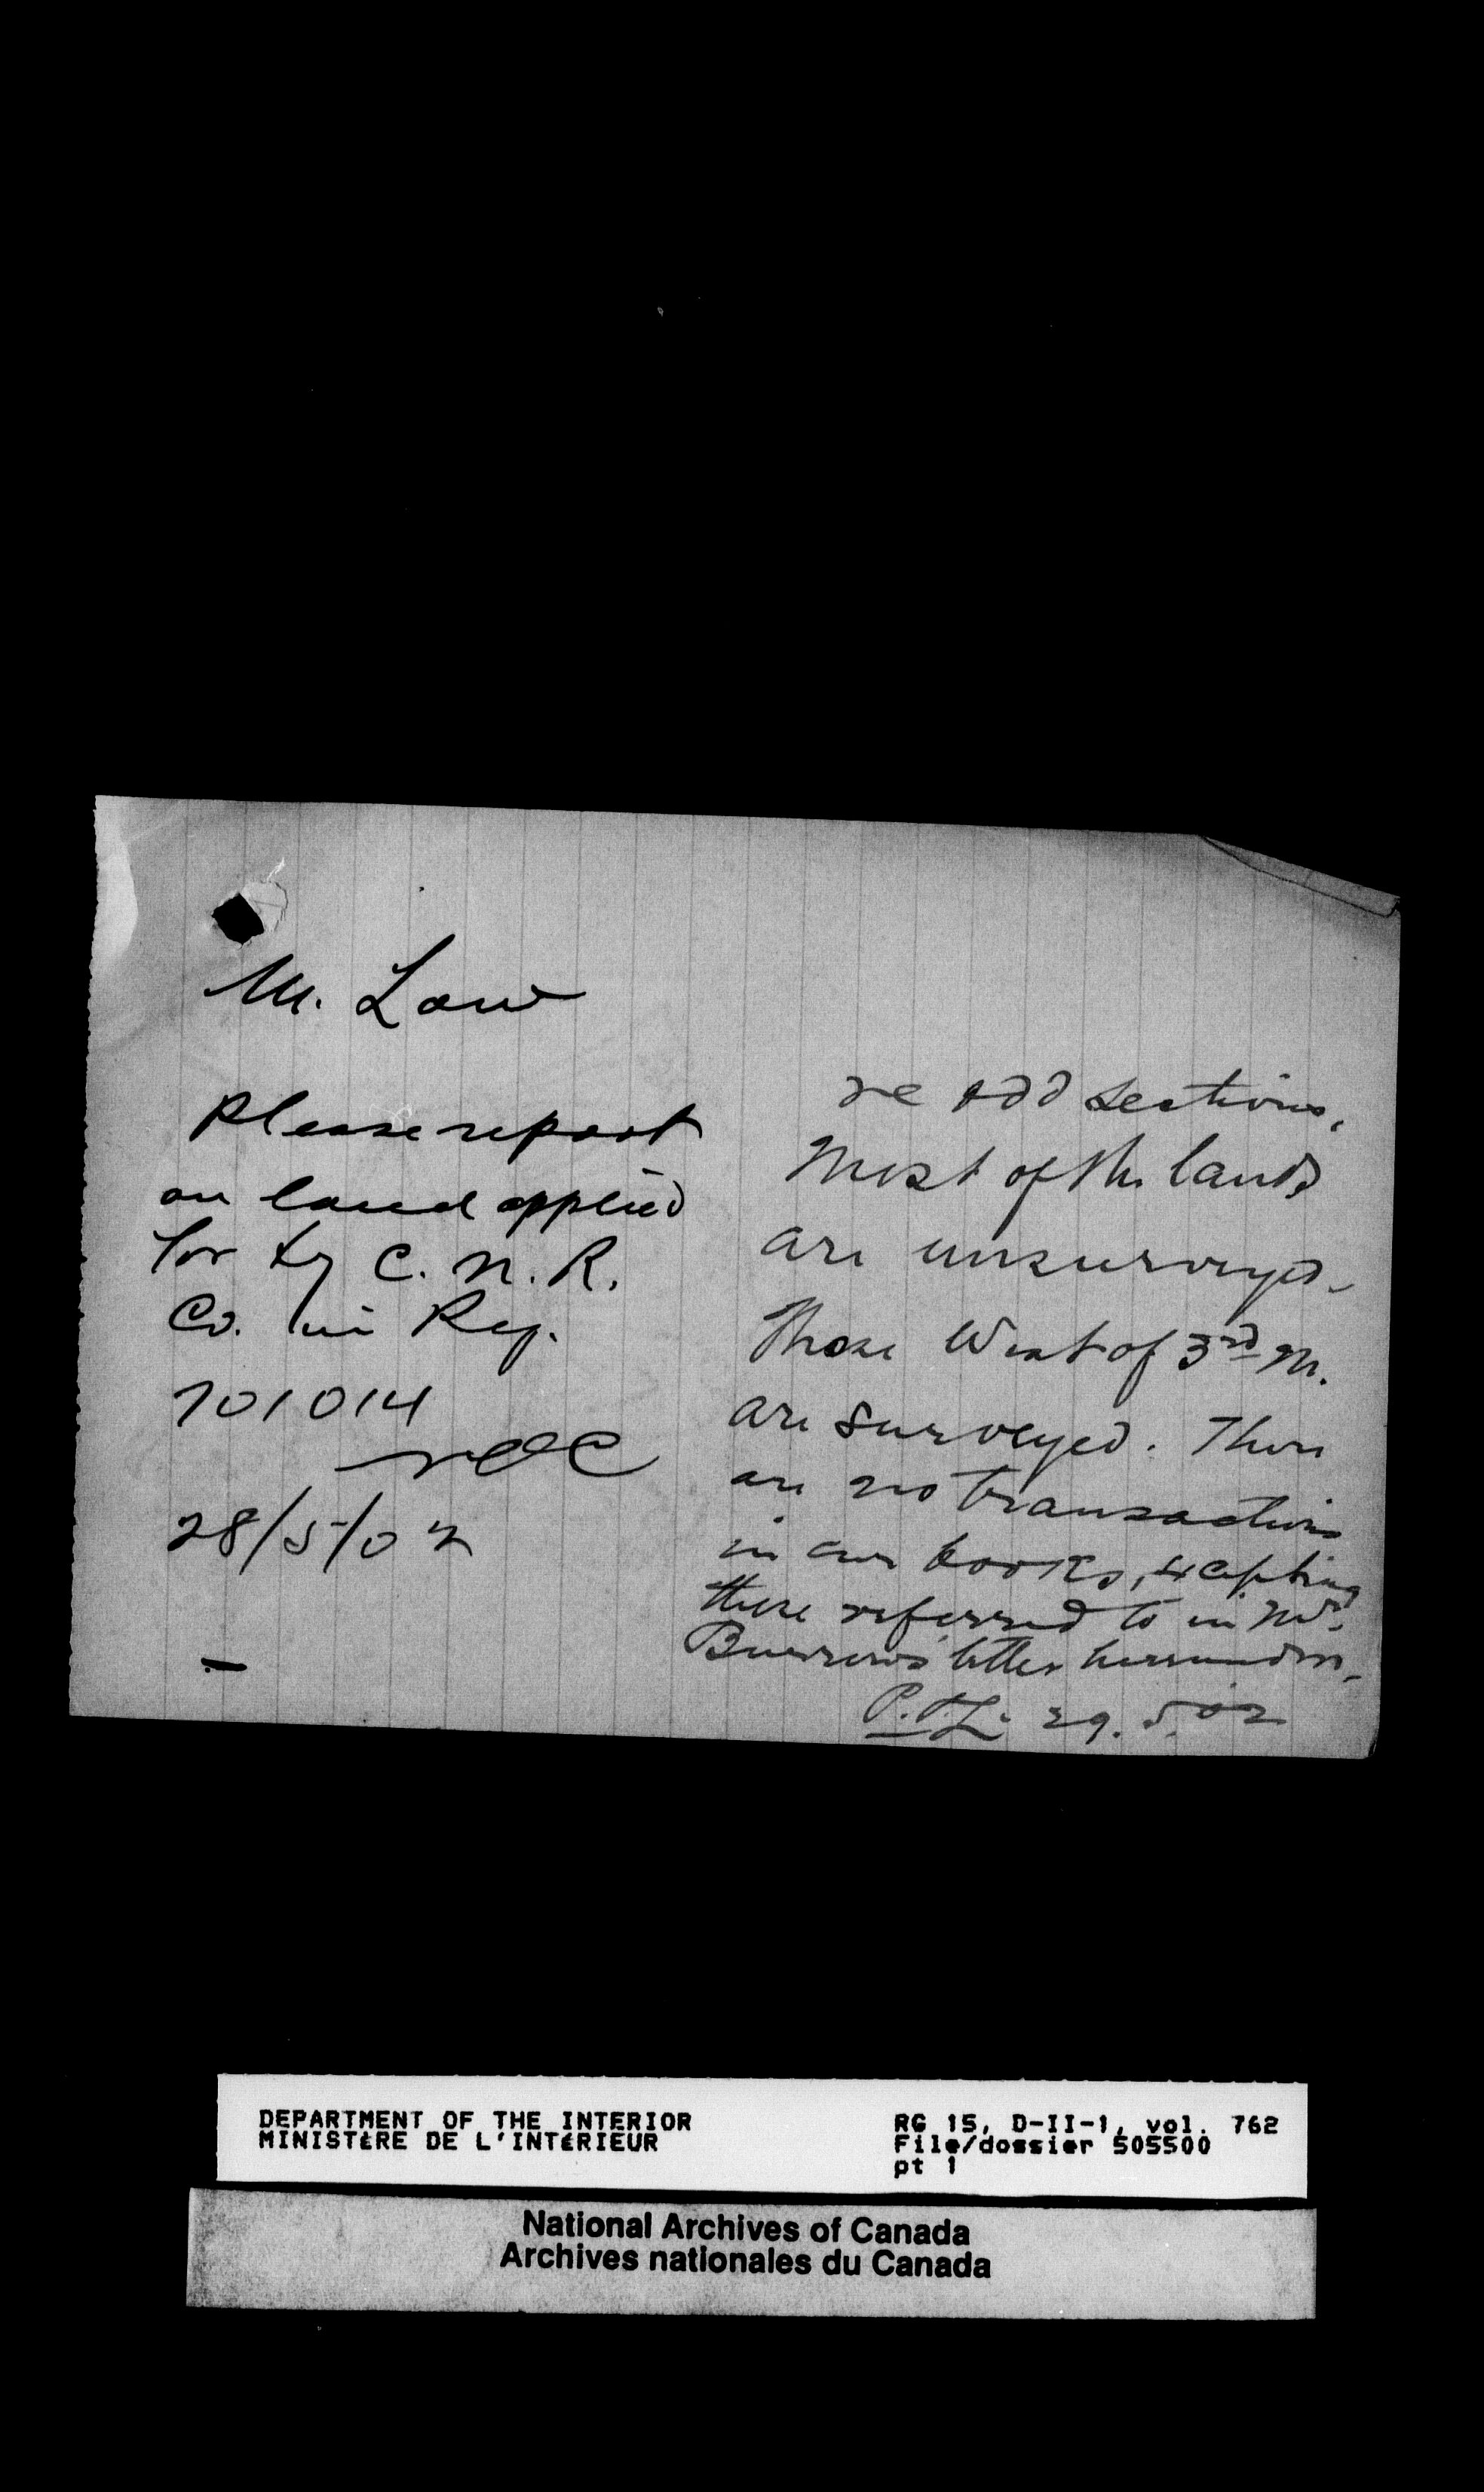 M. Law
Please report
on land applied
for by C. N. R.
Co. in Reg.
701014
28/5/02
re odd sections.
Most of the lands
are unsurveyed.
Those West of 3rd M.
are surveyed. There
are no transactions
in our books, excepting
those referred to in Mr.
Burrows' letter hereunder.
P.T.L. 29.5.02
DEPARTMENT OF THE INTERIOR
MINISTÈRE DE L'INTÉRIEUR
RG 15, D-II-1, vol. 762
File/dossier 505500
pt 1
National Archives of Canada
Archives nationales du Canada